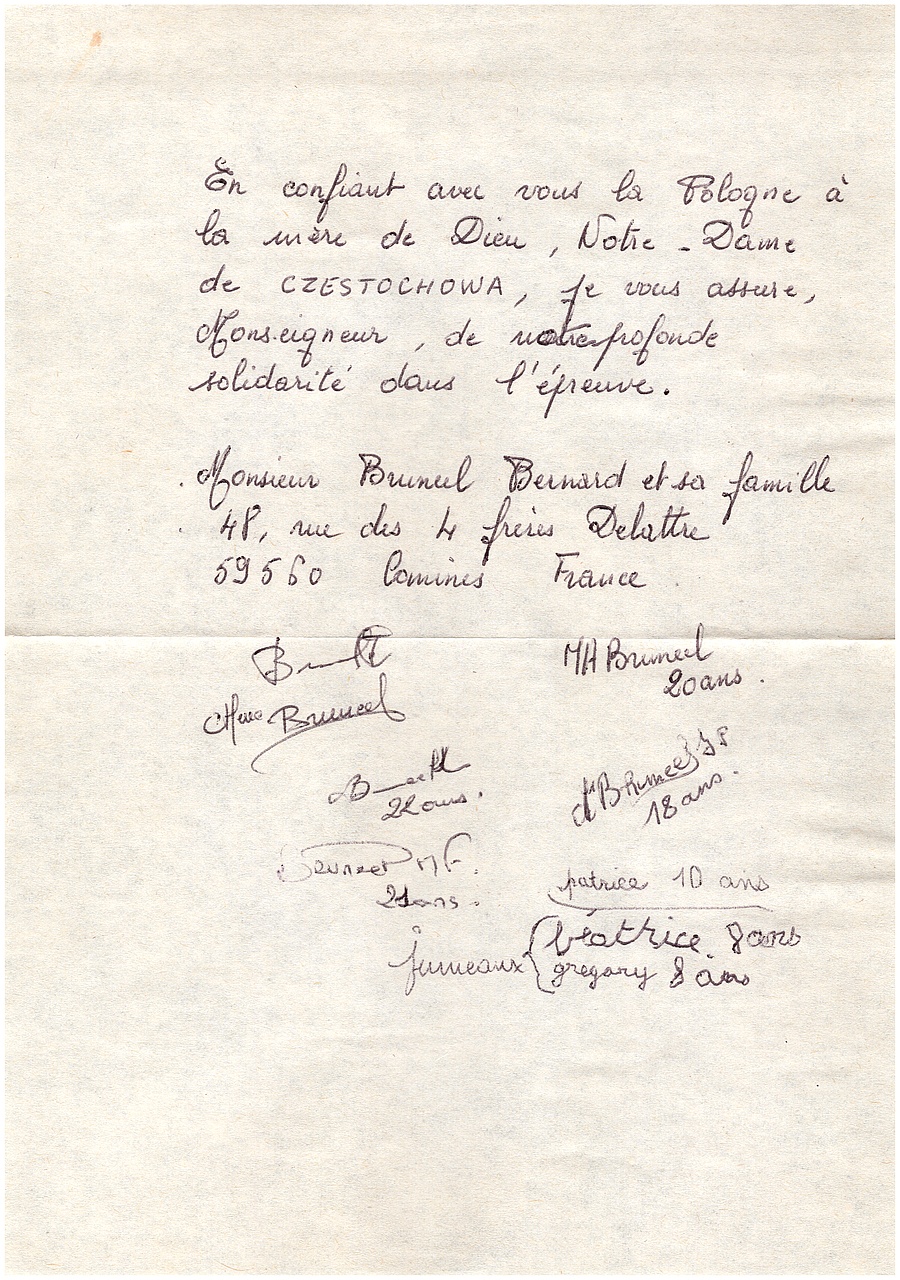 En confiant avec vous la Pologne à
la mère de Dieu, Notre-Dame
de CZESTOCHOWA, je vous assure,
Monseigneur, de notre profonde
solidarité dans l'épreuve.
Monsieur Bruneel Bernard et sa famille
48, rue des 4 frères Delattre
59560 Comines France
Mme Bruneel
22 ans.
MF.
21 ans.
MH Bruneel
20 ans.
Bruneel
18 ans.
patrice 10 ans
jumeaux { béatrice 8 ans
grégory 8 ans